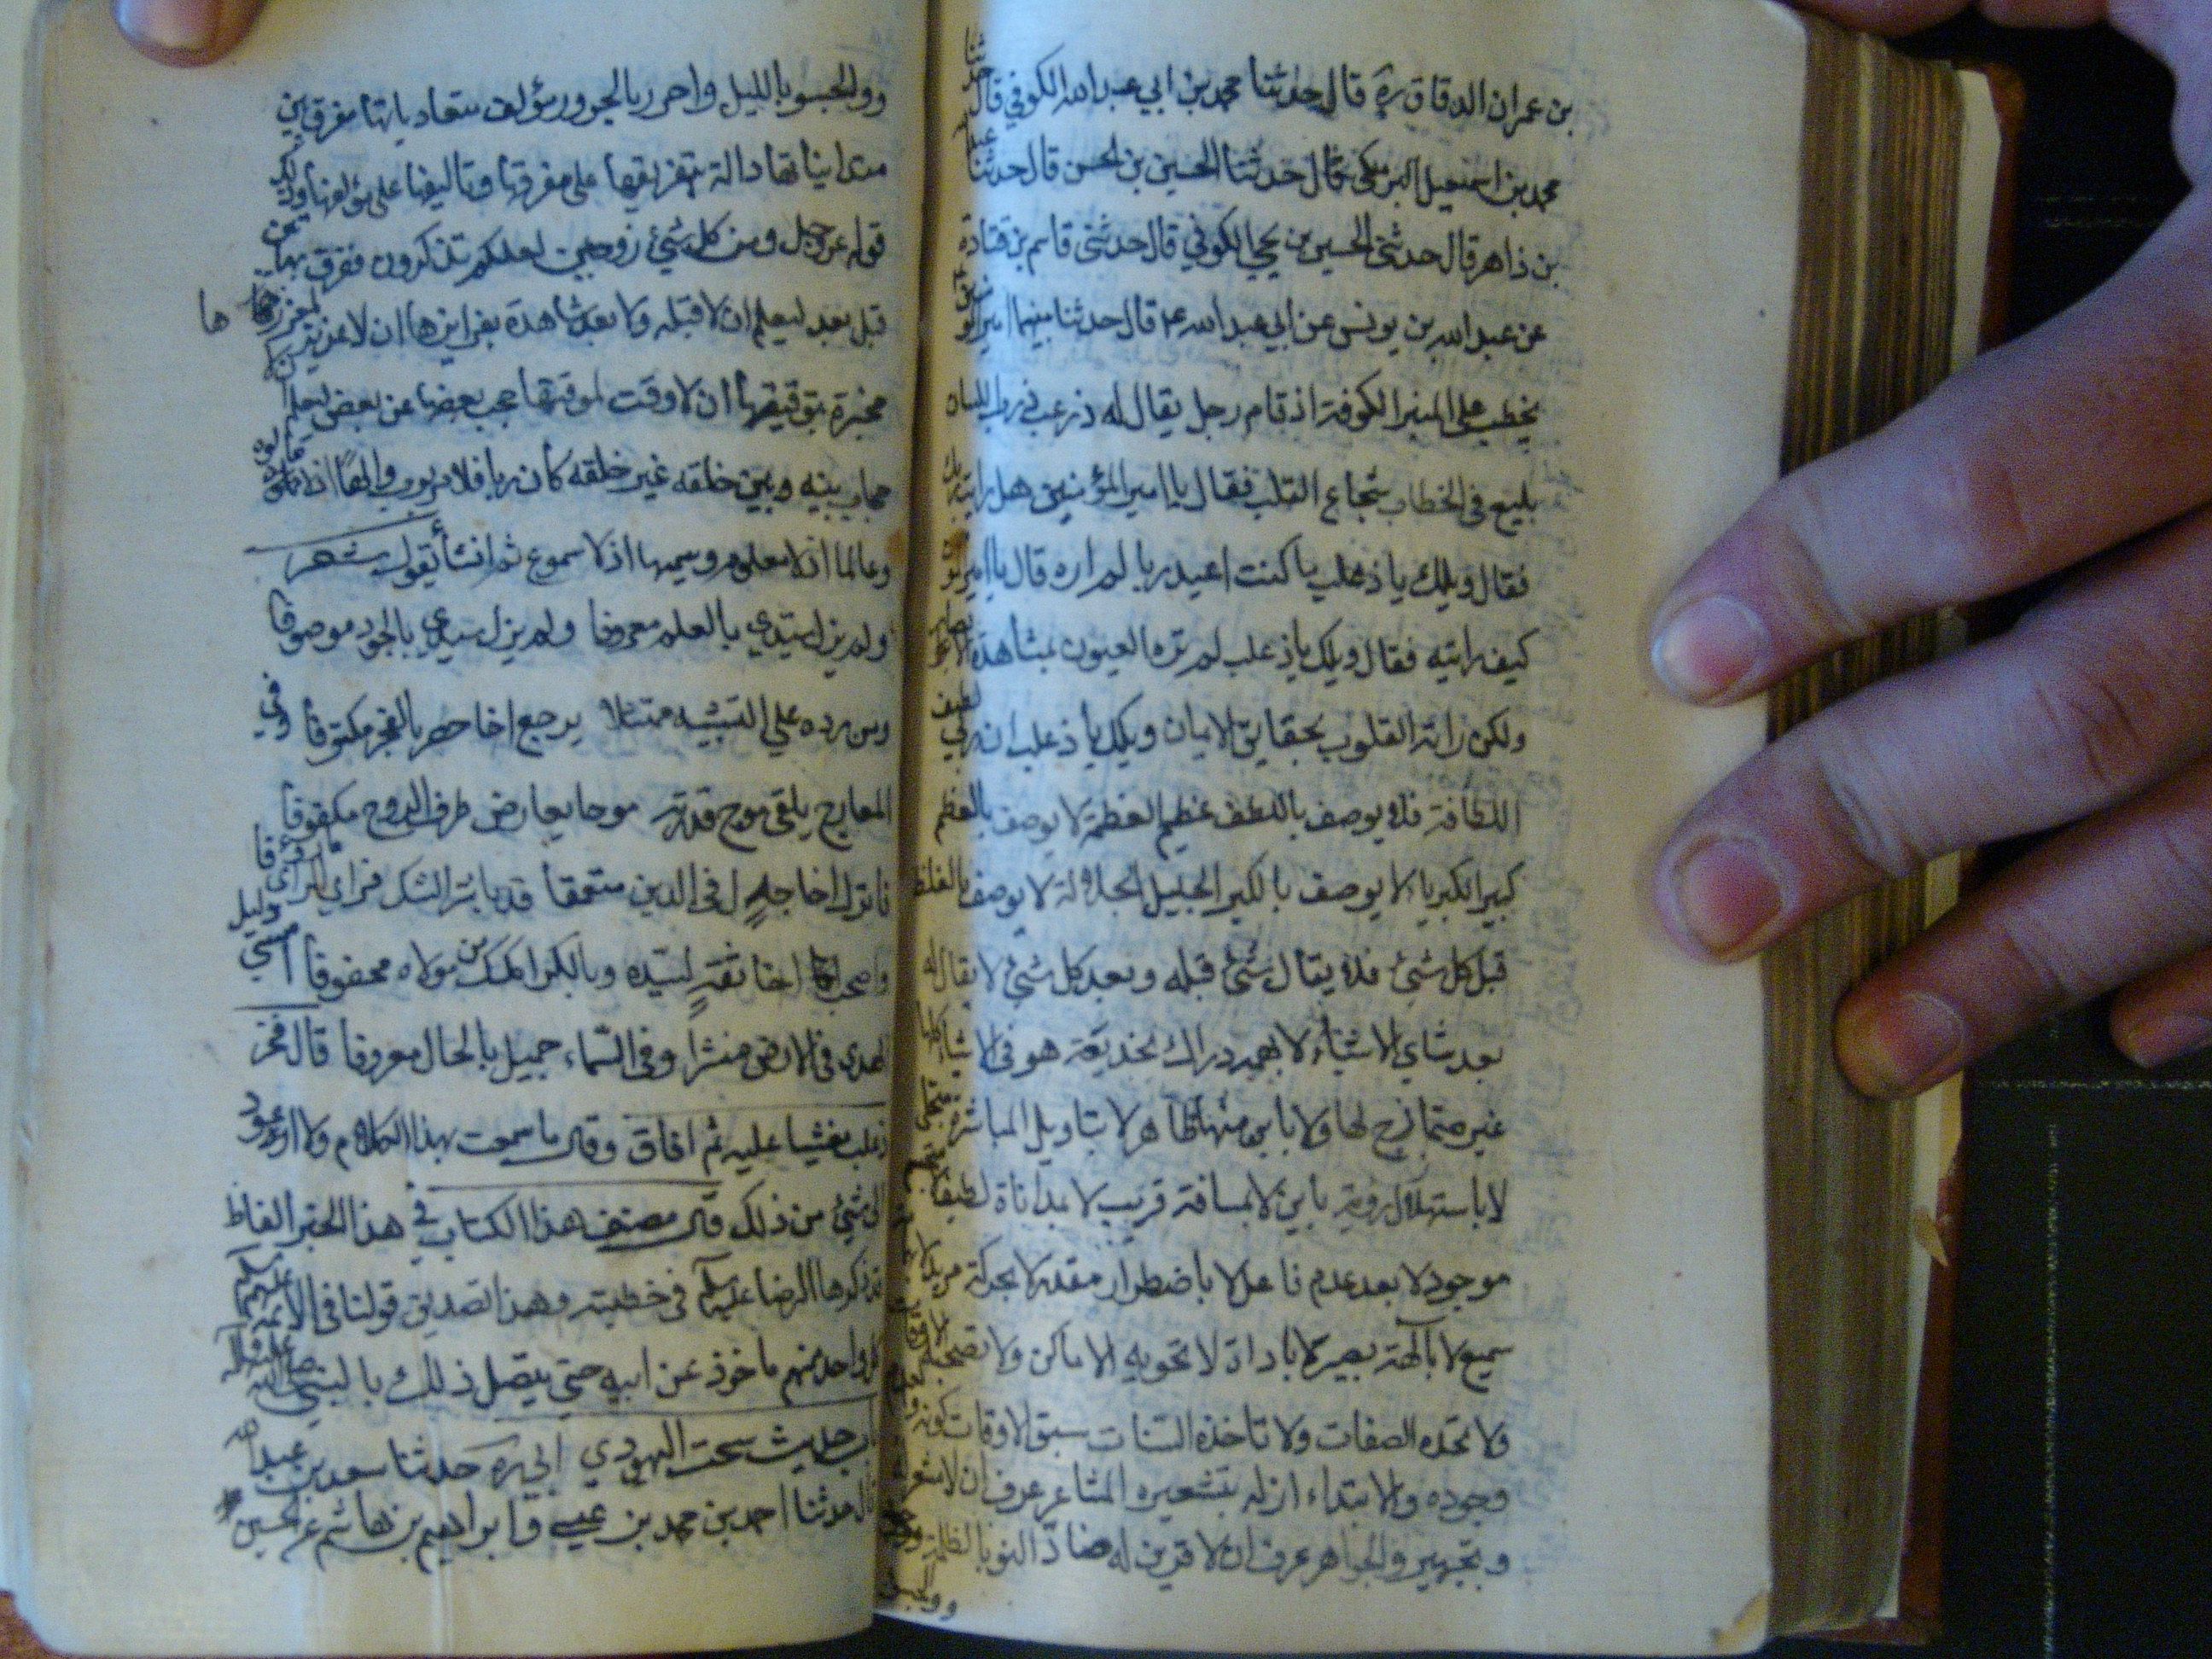 بن عمران الدقاق ره قال حدثنا محمد بن ابي عبد الله الكوفي قال حدثنا
محمد بن اسمعيل البرمكي قال حدثنا الحسين بن الحسن قال حدثنا عبد الله
بن ذاهر قال حدثني الحسين بن يحيى الكوفي قال حدثني قاسم بن قتادة
عن عبد الله بن يونس عن ابي عبد الله عم قال حدثنا بينما امير المؤمنين
يخطب على المنبر الكوفة اذ قام رجل يقال له ذعلب ذرب اللسان
بليغ في الخطاب شجاع القلب فقال يا امير المؤمنين هل رايت ربك
فقال ويلك يا ذعلب ما كنت اعبد ربا لم اره قال يا امير المؤمنين
كيف رايته فقال ويلك يا ذعلب لم تره العيون بمشاهدة الابصار
ولكن راته القلوب بحقايق الايمان ويلك يا ذعلب ان ربي لطيف
اللطافة فلا يوصف باللطف عظيم العظمة لا يوصف بالعظم
كبير الكبرياء لا يوصف بالكبر الجليل الجلالة لا يوصف بالغلظ
قبل كل شئ فلا يقال شئ قبله وبعد كل شئ لا يقال له
بعد شاي الاشياء لا بهمه دراك لا بخديعة هو في الاشياء كلها
غير متمازج لها ولا باين منها ظاهر لا بتاويل المباشرة متجلي
لا باستهلال روية باين لا بمسافة قريب لا بمداناة لطيف
موجود لا بعد عدم فاعل لا باضطرار مقدر لا بحركة مريد لا
سميع لا بآلة بصير لا باداة لا تحويه الاماكن ولا تصحبه الاوقات
ولا تحده الصفات ولا تاخذه السنات سبق الاوقات كونه
وجوده والابتداء ازله بتشعيره المشاعر عرف ان لا مشعر
وبتجهيره الجواهر عرف ان لا قرين له ضاد النور بالظلمة
والجسو بالليل والحرور مؤلف متعادياتها مفرق بين
متدانياتها دالة بتفريقها على مفرقها وتاليفها على مؤلفها وذلك
قوله عز وجل ومن كل شئ زوجين لعلكم تذكرون ففرق بهما بين
قبل وبعد ليعلم ان لا قبله ولا بعد شاهدة بغرايزها ان لا غريزة لمغرزها
ها
مخبرة بتوقيتها ان لا وقت لموقتها حجب بعضها عن بعض ليعلم ان لا
حجاب بينه وبين خلقه غير خلقه كان ربا اذ لا مربوب والها اذ لا مالوه
وعالما اذ لا معلوم وسميعا اذ لا مسموع ثم انشأ يقول شعر
ولم يزل سيدي بالعلم معروفا ولم يزل سيدي بالجود موصوفا
ومن يرده على التشبيه ممتثلا يرجع اخا حصر بالعجز مكتوفا وفي
المعارج يلقى موج قدرته موجا يعارض طرف الروح مكفوفا
فاترك اخا جدل في الدين متعمقا قد باشر الشك فراى الراي ماووفا
واصحب اخا ثقة لسيده وبالكرامات من مولاه محفوفا امسى دليل
الهدى في الارض منتشرا وفي السماء جميل بالحال معروفا قال فخر
ذعلب مغشيا عليه ثم افاق وقال ما سمعت بهذا الكلام ولا اعود
الى شئ من ذلك قال مصنف هذا الكتاب في هذا الخبر الفاظ
قد ذكرها الرضا عليه السلم في خطبته وهذا تصديق قولنا في الائمة عليهم السلم
كل واحد منهم ماخوذ عن ابيه حتى يتصل ذلك بالنبي صلى الله عليه وآله
حديث سبحت اليهودي ابي ره حدثنا سعد بن عبد الله
قال حدثنا احمد بن محمد بن عيسى وابراهيم بن هاشم عن الحسن